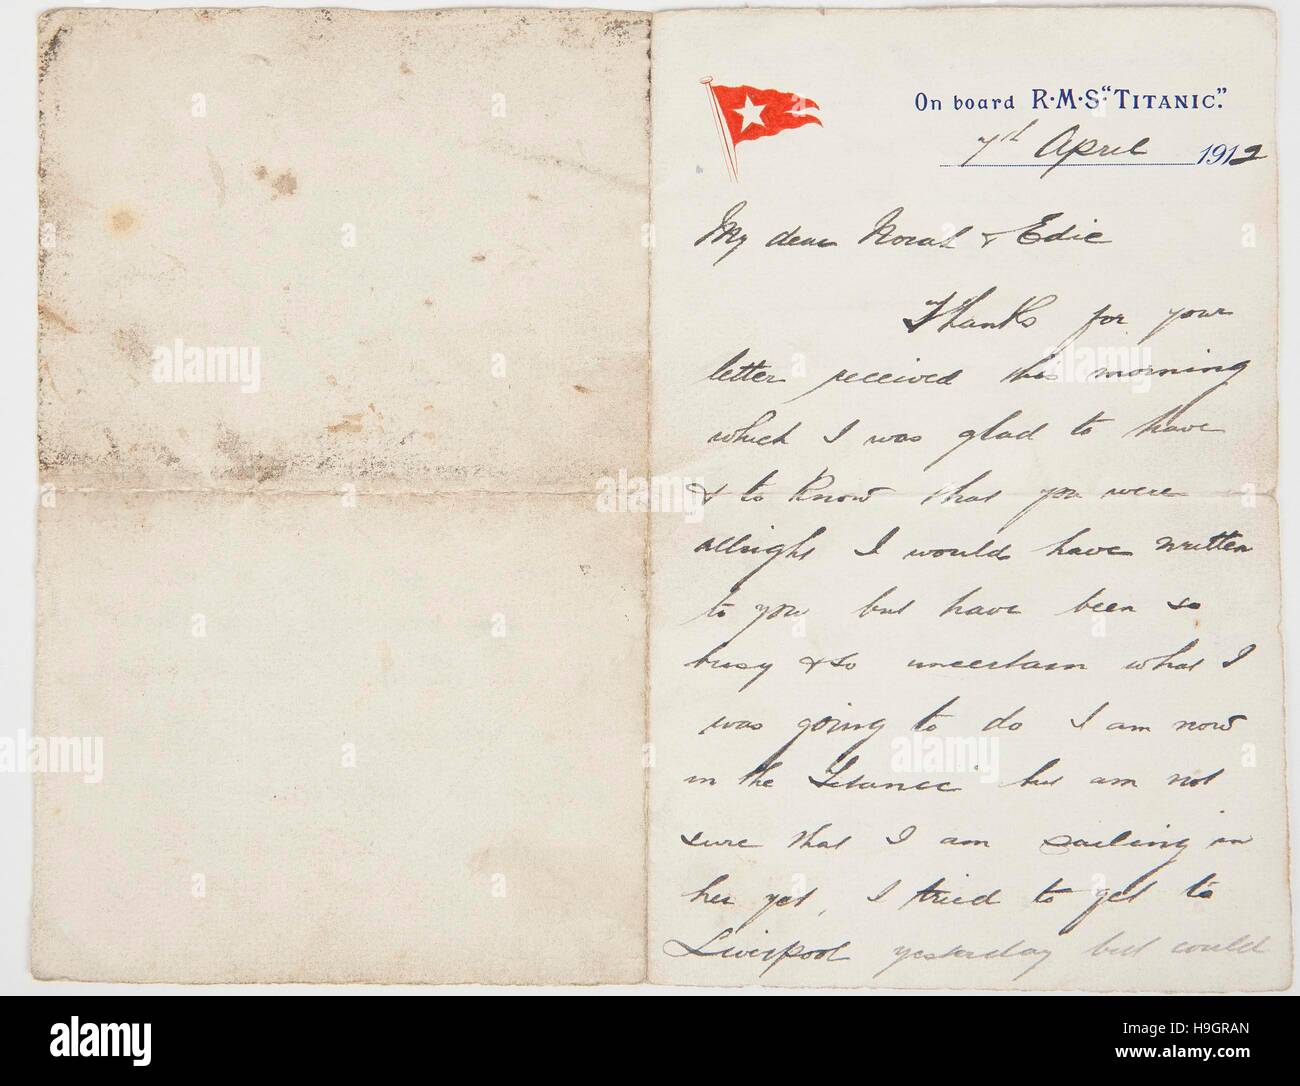 On board R·M·S·"TITANIC."
7th April 1912
My dear Norah & Edie
Thanks for your
letter received this morning
which I was glad to have
& to know that you were
allright I would have written
to you but have been so
busy & so uncertain what I
was going to do I am now
in the Titanic but am not
sure that I am sailing in
her yet, I tried to get to
Liverpool yesterday but could
alamy
alamy
alamy
alamy
alamy
alamy
alamy
alamy stock photo
H9GRAN
www.alamy.com